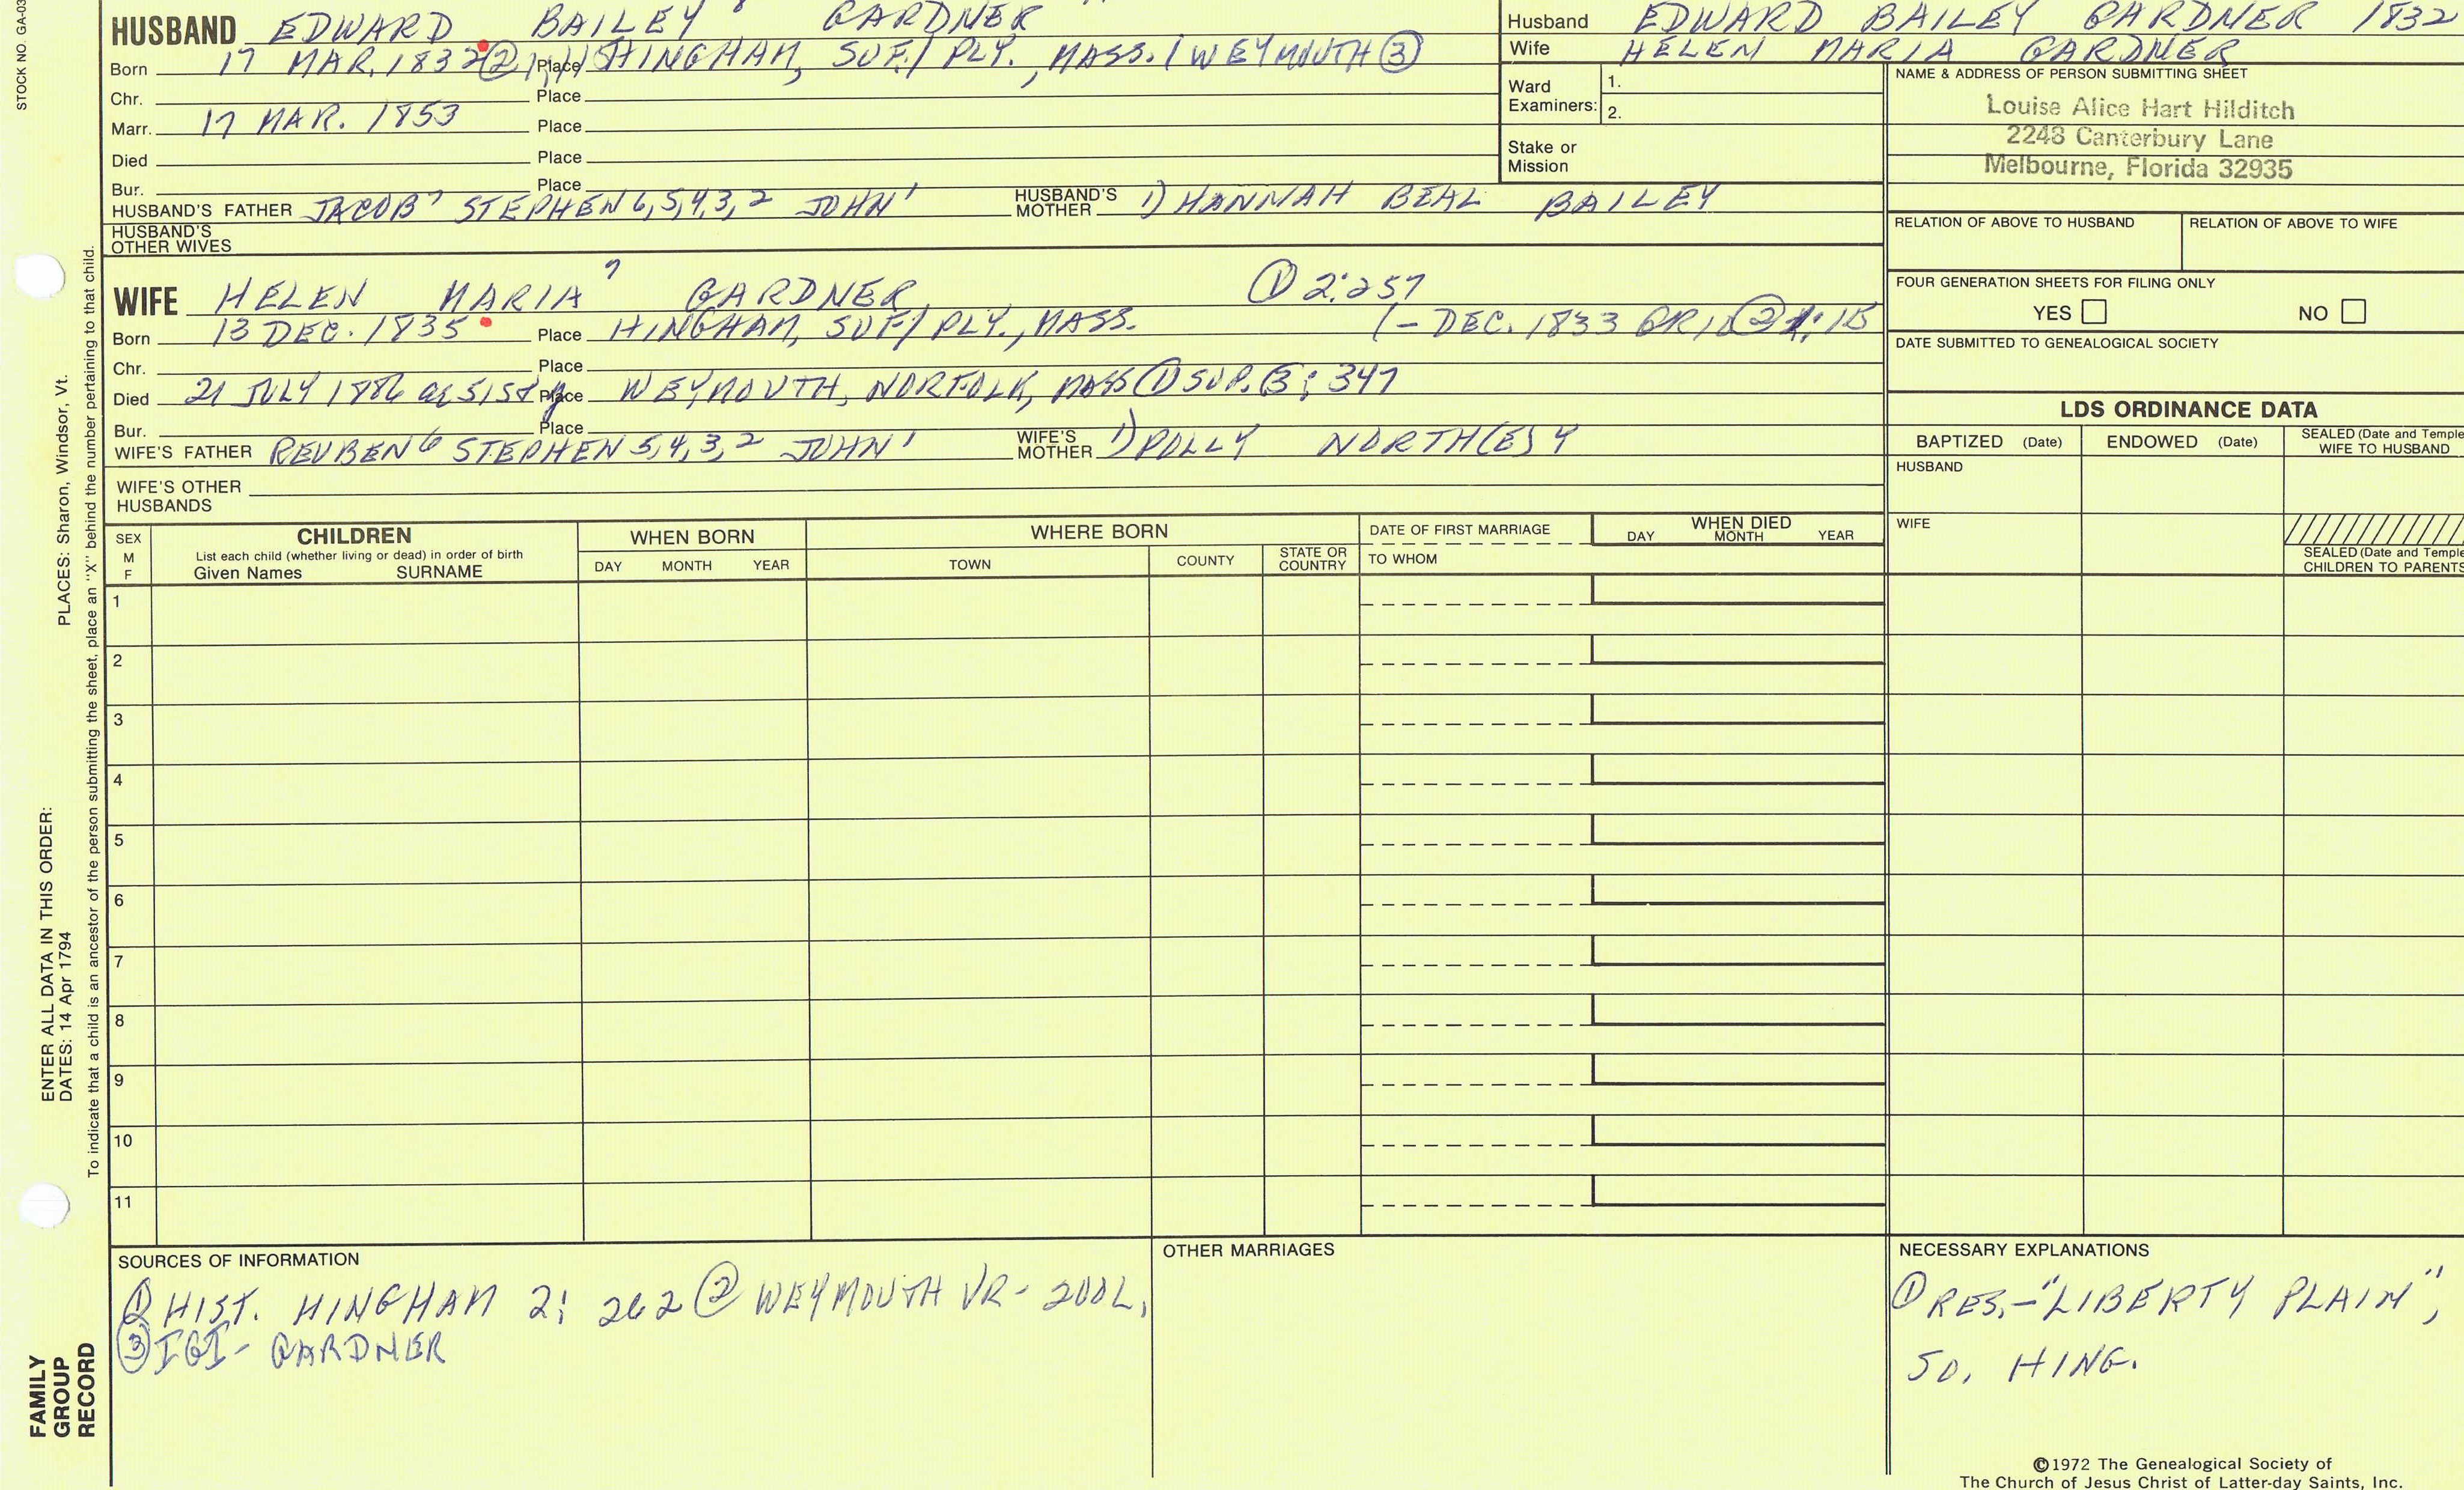 HUSBAND EDWARD BAILEY 8 GARDNER
Born 17 MAR. 1832 ② Place HINGHAM, SUF./PLY., MASS. / WEYMOUTH ③
Chr. Place
Marr. 17 MAR. 1853 Place
Died Place
Bur. Place
HUSBAND'S FATHER JACOB 7 STEPHEN 6,5,4,3,2 JOHN 1 HUSBAND'S MOTHER 1) HANNAH BEAL BAILEY
HUSBAND'S OTHER WIVES
Husband EDWARD BAILEY GARDNER 1832
Wife HELEN MARIA GARDNER
Ward Examiners: 1.
2.
Stake or Mission
NAME & ADDRESS OF PERSON SUBMITTING SHEET
Louise Alice Hart Hilditch
2248 Canterbury Lane
Melbourne, Florida 32935
RELATION OF ABOVE TO HUSBAND RELATION OF ABOVE TO WIFE
FOUR GENERATION SHEETS FOR FILING ONLY
YES NO
DATE SUBMITTED TO GENEALOGICAL SOCIETY
WIFE HELEN MARIA 7 GARDNER ① 2:257
Born 13 DEC. 1835 Place HINGHAM, SUF/PLY., MASS. (- DEC. 1833 GR1 ② 1:115
Chr. Place
Died 21 JULY 1886 Place WEYMOUTH, NORFOLK, MASS ① SUP. ③: 347
Bur. Place
WIFE'S FATHER REUBEN 6 STEPHEN 5,4,3,2 JOHN 1 WIFE'S MOTHER 1) POLLY NORTH(E)Y
WIFE'S OTHER HUSBANDS
LDS ORDINANCE DATA
BAPTIZED (Date) ENDOWED (Date) SEALED (Date and Temple WIFE TO HUSBAND
HUSBAND
WIFE
SEALED (Date and Temple
CHILDREN TO PARENTS
SEX M F
CHILDREN
List each child (whether living or dead) in order of birth
Given Names SURNAME
WHEN BORN
DAY MONTH YEAR
WHERE BORN
TOWN COUNTY STATE OR COUNTRY
DATE OF FIRST MARRIAGE
TO WHOM
WHEN DIED
DAY MONTH YEAR
1
2
3
4
5
6
7
8
9
10
11
SOURCES OF INFORMATION
① HIST. HINGHAM 2: 262 ② WEYMOUTH VR - 200L.
③ IGI - GARDNER
OTHER MARRIAGES
NECESSARY EXPLANATIONS
① RES. - "LIBERTY PLAIN",
SO. HING.
©1972 The Genealogical Society of
The Church of Jesus Christ of Latter-day Saints, Inc.
STOCK NO. GA-03
ENTER ALL DATA IN THIS ORDER:
DATES: 14 Apr 1794 PLACES: Sharon, Windsor, Vt.
To indicate that a child is an ancestor of the person submitting the sheet, place an "X" behind the number pertaining to that child.
FAMILY
GROUP
RECORD